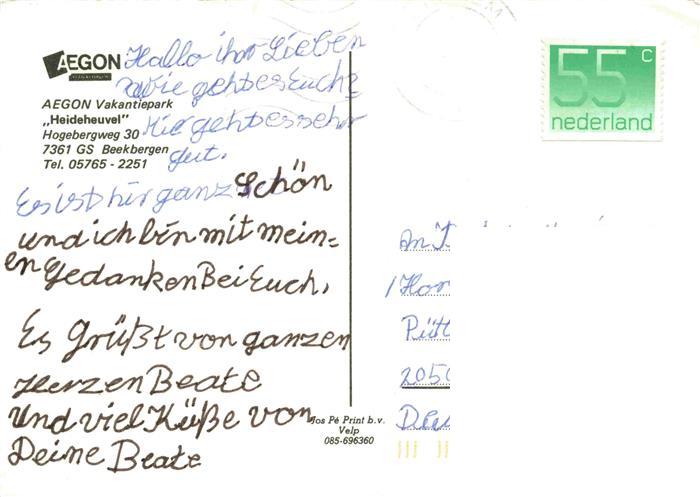 AEGON
AEGON Vakantiepark
„Heideheuvel"
Hogebergweg 30
7361 GS Beekbergen
Tel. 05765 - 2251
Hallo ihr Lieben
wie geht es Euch?
Hir geht es sehr
gut.
Es ist hir ganz Schön
und ich bin mit mein=
en Gedanken Bei Euch.
Es Grüßt von ganzen
Herzen Beate
und viel Küße von
Deine Beate
55 c
nederland
An
Jos Pé Print b.v.
Velp
085-696360